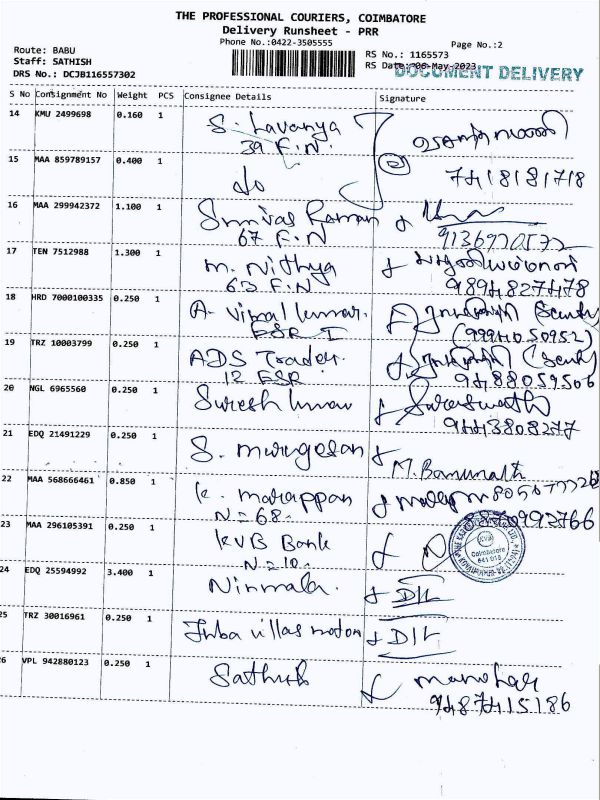 THE PROFESSIONAL COURIERS, COIMBATORE
Delivery Runsheet - PRR
Phone No.:0422-3505555
Page No.:2
Route: BABU
Staff: SATHISH
DRS No.: DCJB116557302
RS No.: 1165573
RS Date: 06-May-2023
DOCUMENT DELIVERY
S No Consignment No Weight PCS Consignee Details Signature
14 KMU 2499698 0.160 1 S. Lavanya
39 F.N.
15 MAA 859789157 0.400 1 do 7418181718
16 MAA 299942372 1.100 1 Srinivas Raman
67 F.N
17 TEN 7512988 1.300 1 M. Nithya
63 F.N 9894827478
18 HRD 7000100335 0.250 1 A. Vimal kumar.
ESR I
19 TRZ 10003799 0.250 1 ADS Trader.
12 ESR 9488059506
20 NGL 6965560 0.250 1 Suresh kumar Saraswathi
9443808277
21 EDQ 21491229 0.250 1 S. Murugesan
22 MAA 568666461 0.850 1 K. Marappan
N-68
23 MAA 296105391 0.250 1 KVB Bank
N-10 Coimbatore
641 018
24 EDQ 25594992 3.400 1 Nirmala. D/L
25 TRZ 30016961 0.250 1 Inba villas motor D/L
26 VPL 942880123 0.250 1 Sathish Manohar
9487415186